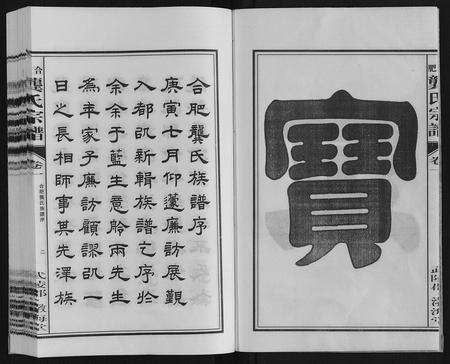 肥龔氏宗譜 卷
寶
合肥龔氏族譜序
庚寅七月仰蘧廉訪展覲
入都㠯新輯族譜乞序於
余余于藍生意舲兩先生
為年家子廉訪顧謬㠯一
日之長相師事其先澤族
合 龔氏宗譜 卷一
合肥龔氏族譜序
二